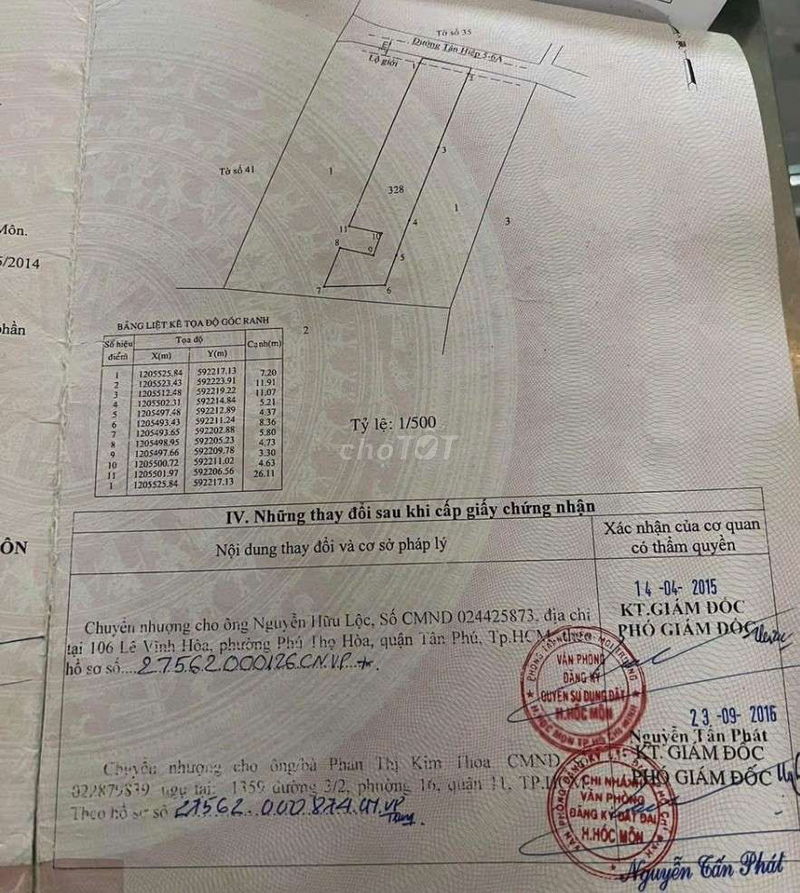 Tờ số 35
Đường Tân Hiệp 5-6A
Lộ giới
1
2
3
Tờ số 41
1
328
1
3
4
11
10
8
9
5
7
6
2
Môn.
5/2014
phần
ÔN
BẢNG LIỆT KÊ TỌA ĐỘ GÓC RANH
Số hiệu điểm Tọa độ Cạnh(m)
X(m) Y(m)
1 1205525.84 592217.13 7.20
2 1205523.43 592223.91 11.91
3 1205512.48 592219.22 11.07
4 1205502.31 592214.84 5.21
5 1205497.48 592212.89 4.37
6 1205493.43 592211.24 8.36
7 1205493.65 592202.88 5.80
8 1205498.95 592205.23 4.73
9 1205497.66 592209.78 3.30
10 1205500.72 592211.02 4.63
11 1205501.97 592206.56 26.11
1 1205525.84 592217.13
Tỷ lệ: 1/500
choTỐT
IV. Những thay đổi sau khi cấp giấy chứng nhận
Nội dung thay đổi và cơ sở pháp lý
Xác nhận của cơ quan
có thẩm quyền
Chuyển nhượng cho ông Nguyễn Hữu Lộc, Số CMND 024425873, địa chỉ
tại 106 Lê Vĩnh Hòa, phường Phú Thọ Hòa, quận Tân Phú, Tp.HCM, theo
hồ sơ số....27562.000126.CN.VP
14-04-2015
KT.GIÁM ĐỐC
PHÓ GIÁM ĐỐC
VĂN PHÒNG
ĐĂNG KÝ
QUYỀN SỬ DỤNG ĐẤT
H.HÓC MÔN
Nguyễn Tấn Phát
23-09-2016
Chuyển nhượng cho ông/bà Phan Thị Kim Thoa CMND
022879839 ngụ tại: 1359 đường 3/2, phường 16, quận 11,
Theo hồ sơ số 27562.000874.CN.VP
KT. GIÁM ĐỐC
PHÓ GIÁM ĐỐC
CHI NHÁNH
VĂN PHÒNG
ĐĂNG KÝ ĐẤT ĐAI
H.HÓC MÔN
Nguyễn Tấn Phát